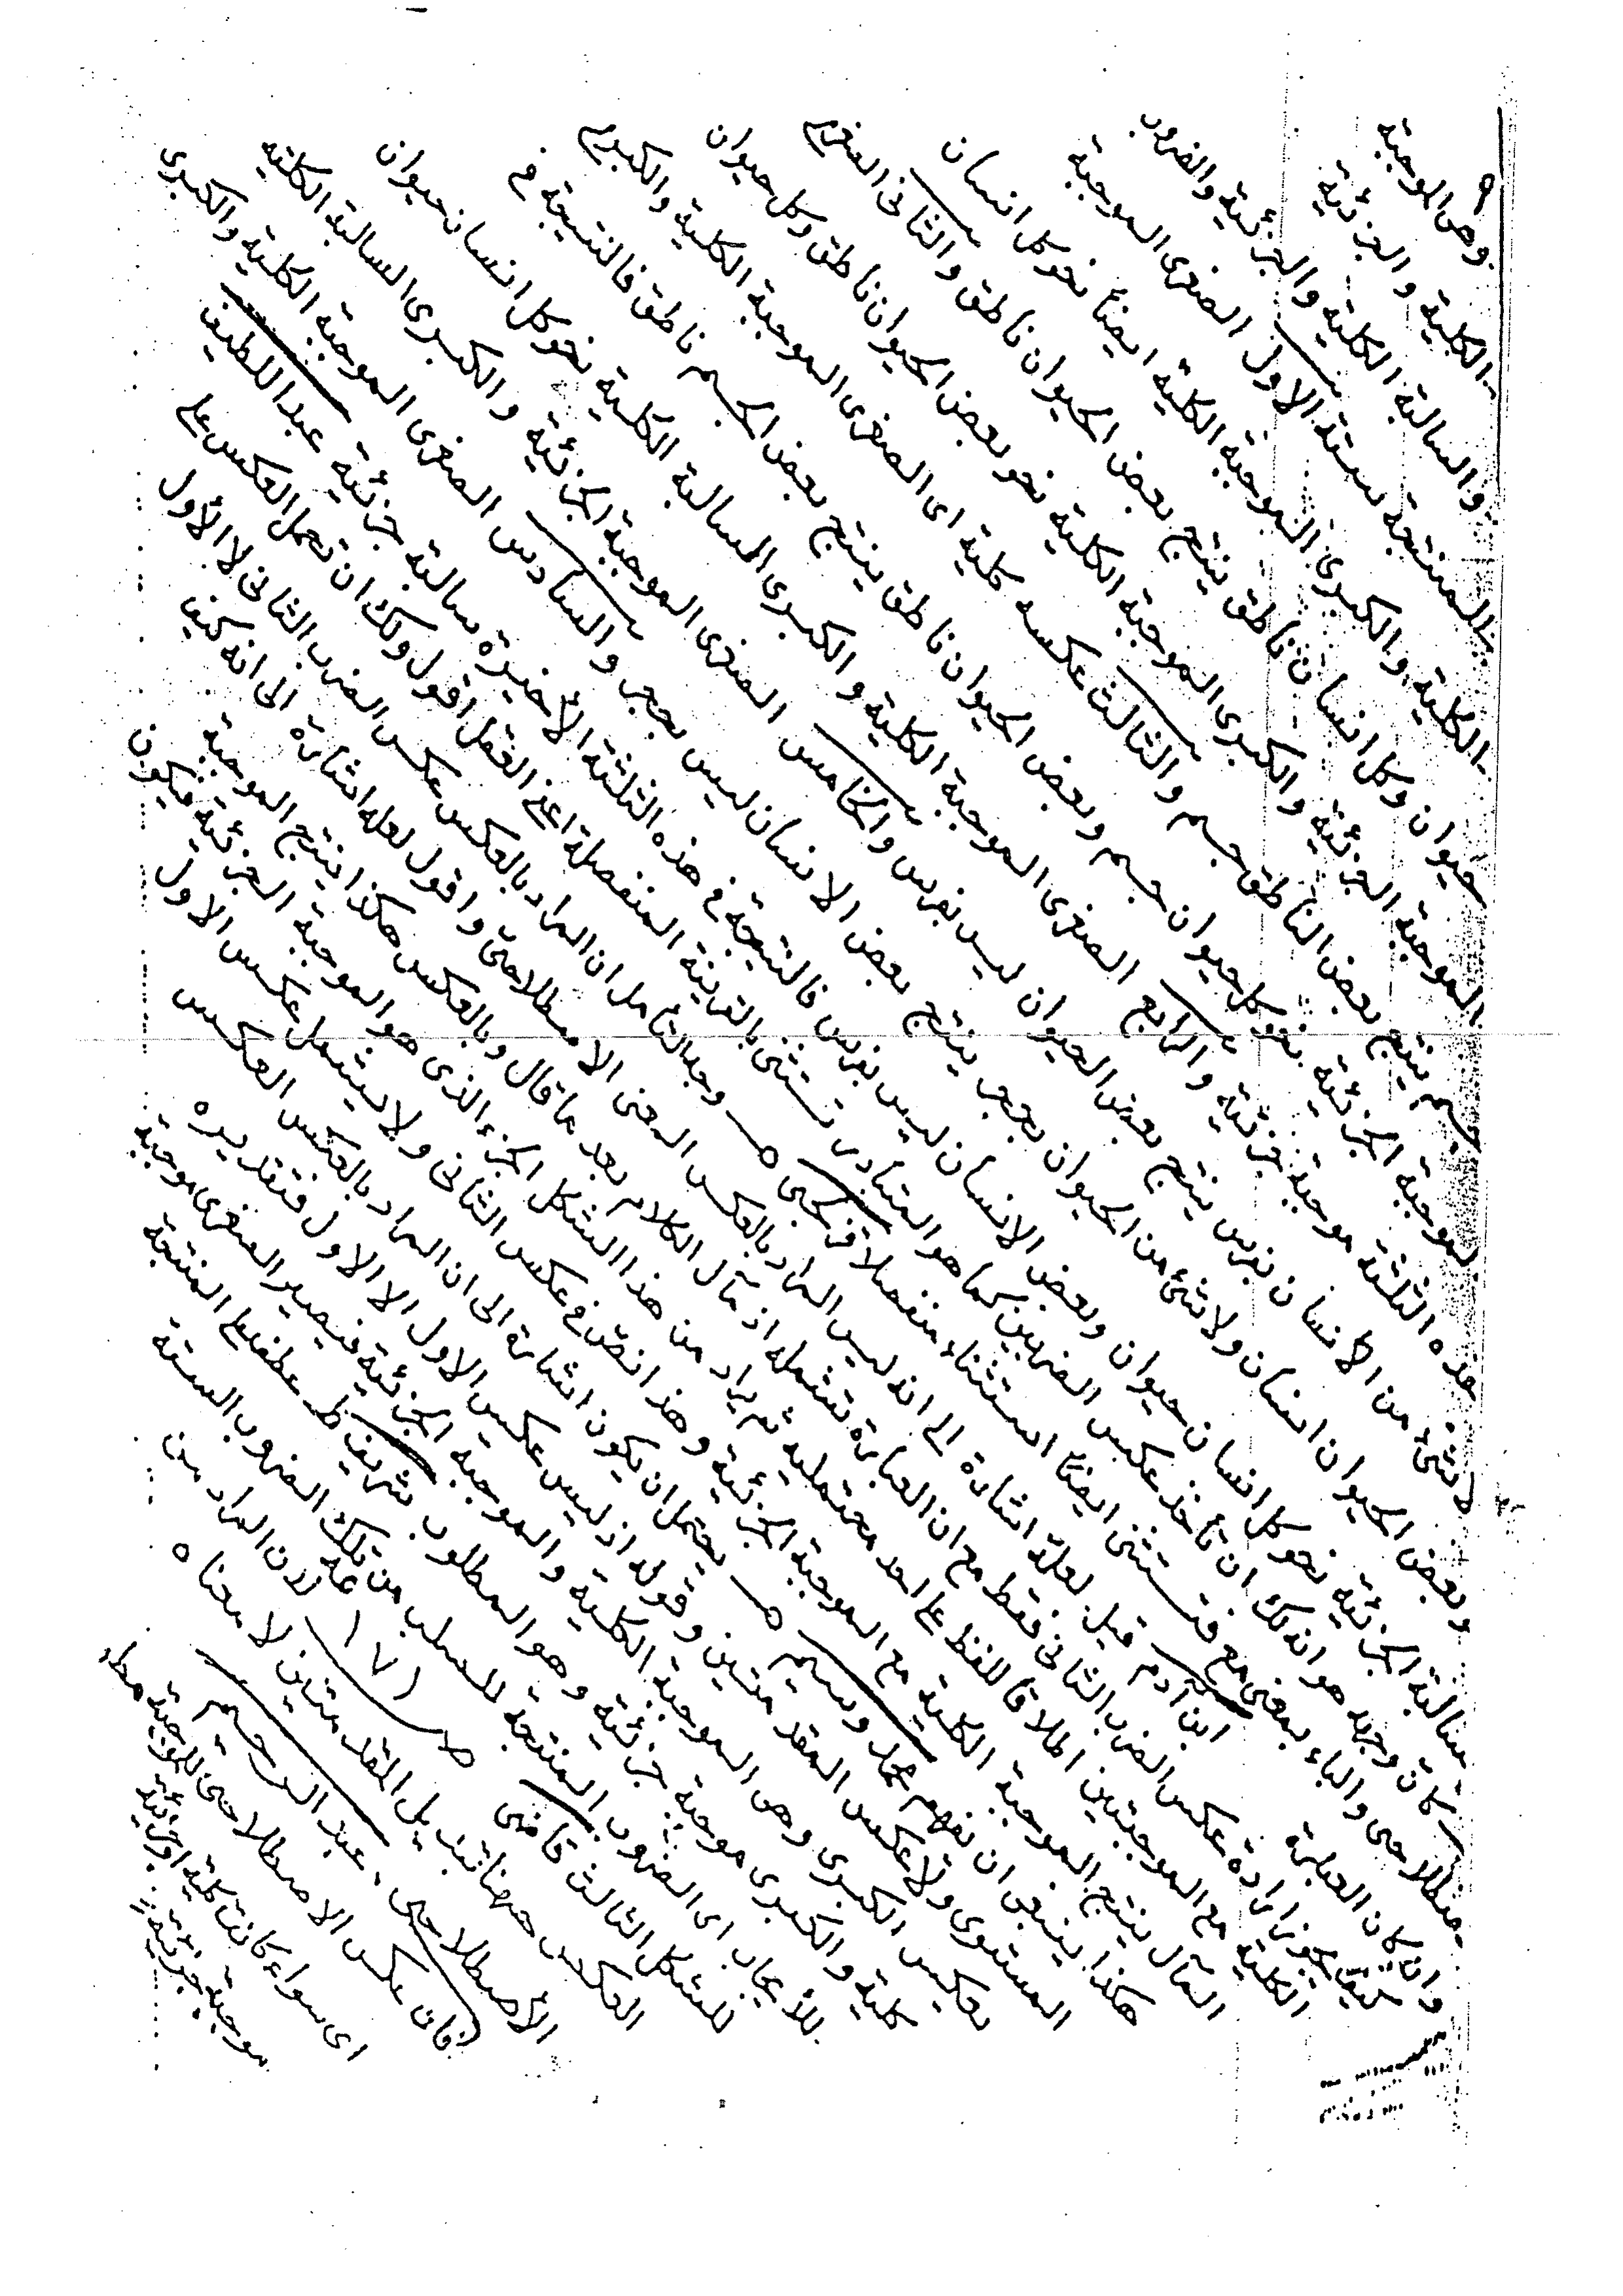 وهى الموجبة
الكلية و الجزئية
والسالبة الكلية والجزئية والضروب
المنتجة ستة الاول الصغرى الموجبة
الكلية والكبرى الموجبة الكلية ايضاً نحو كل انسان
حيوان وكل انسان ناطق ينتج بعض الحيوان ناطق والثانى الصغرى
الموجبة الجزئية والكبرى الموجبة الكلية نحو بعض الحيوان ناطق وكل حيوان
جسم ينتج بعض الناطق جسم والثالث عكسه كلية اى الصغرى الموجبة الكلية والكبرى
الموجبة الجزئية نحو كل حيوان جسم وبعض الحيوان ناطق ينتج بعض الجسم ناطق فالنتيجة فى
هذه الثلثة موجبة جزئية والرابع الصغرى الموجبة الكلية و الكبرى السالبة الكلية نحو كل انسان حيوان
لاشئ من الانسان بفرس ينتج بعض الحيوان ليس بفرس والخامس الصغرى الموجبة الجزئية و الكبرى السالبة الكلية
وبعض الحيوان انسان ولا شئ من الحيوان بحجر ينتج بعض الانسان ليس بحجر والسادس الصغرى الموجبة الكلية والكبرى
سالبة الجزئية نحو كل انسان حيوان وبعض الانسان ليس بفرس فالنتيجة فى هذه الثلثة الأخيرة سالبة جزئية عبد اللطيف
كان وجيه هو انه لك ان تأخذ عكس الضربين كما هو المتبادر تستثنى بالقرينة المنفصلة اعنى العقل اقول ولك ان تحمل العكس على
صطلاحى والباء بمعنى مع فتستثنى ايضاً استثناء منفصلا قزلجى صـ وجه التأمل ان المراد بالعكس عكس الضرب الثانى لا الأول
وان كان العبارة ابن آدم قيل لعله اشارة الى انه ليس المراد بالعكس المعنى الاصطلاحى واقول لعله اشارة الى انه كيف
كيف يجوز ارادة عكس الضرب الثانى فقط مع ان العبارة تشمله اذ مآل الكلام بعد ما قال وبالعكس هكذا ينتج الموجبة
الكلية مع الموجبتين اطلاقا للفظ على احد محتمليه ثم يراد من هذا الشكل الجزء الذى هو الموجبة الجزئية فيكون
المآل ينتج الموجبة الكلية مع الموجبة الجزئية وهذا نص فى عكس الثانى ولا يشمل عكس الاول
هكذا ينبغى ان تفهم محمد وسيم صـ يحتمل ان يكون اشارة الى ان المراد بالعكس العكس
المستوى ولا عكس المقدمتين وقوله اذ ليس عكس الاول الا الاول فتقديره
بعكس الكبرى وهى الموجبة الكلية والموجبة الجزئية فيصير الصغرى موجبة
كلية والكبرى موجبة جزئية وهو المطلوب شريف ط عطف على المنتجة
للأيجاب اى الضروب المنتجة للسلب من تلك الضروب الستة
للشكل الثالث قاضى صـ (١٧) علة لان المراد من
العكس ههنا تبديل المقدمتين لا معناه
الأصطلاحى، عبد الرحيم
فان عكس الاصطلاحى للموجبة مط
اى سواء كانت كلية او جزئية
موجبة جزئية